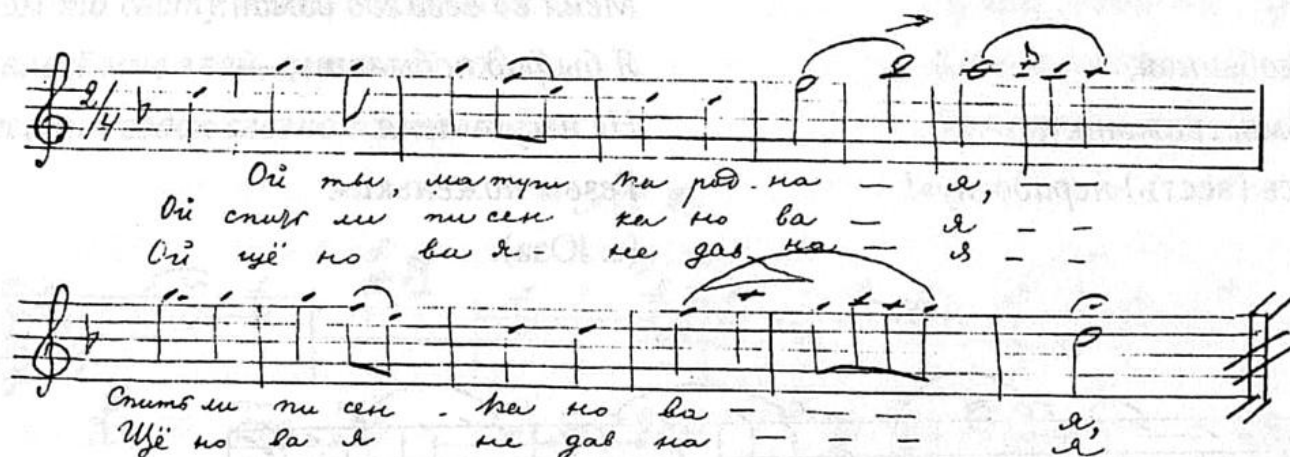 2/4
Ой ты, матуш ка род-на — я, — —
Ой спить ли пи сен ка но ва — я — —
Ой щё но ва я - не дав на — я — —
Спить ли пи сен - ка но ва — — — — я,
Щё но ва я не дав на — — — я